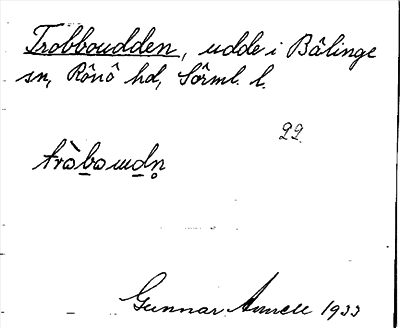 Trobboudden, udde i Bâlinge
sn, Rônô hd, Sörml. l.
22.
tròbowdn̥
Gunnar 1933